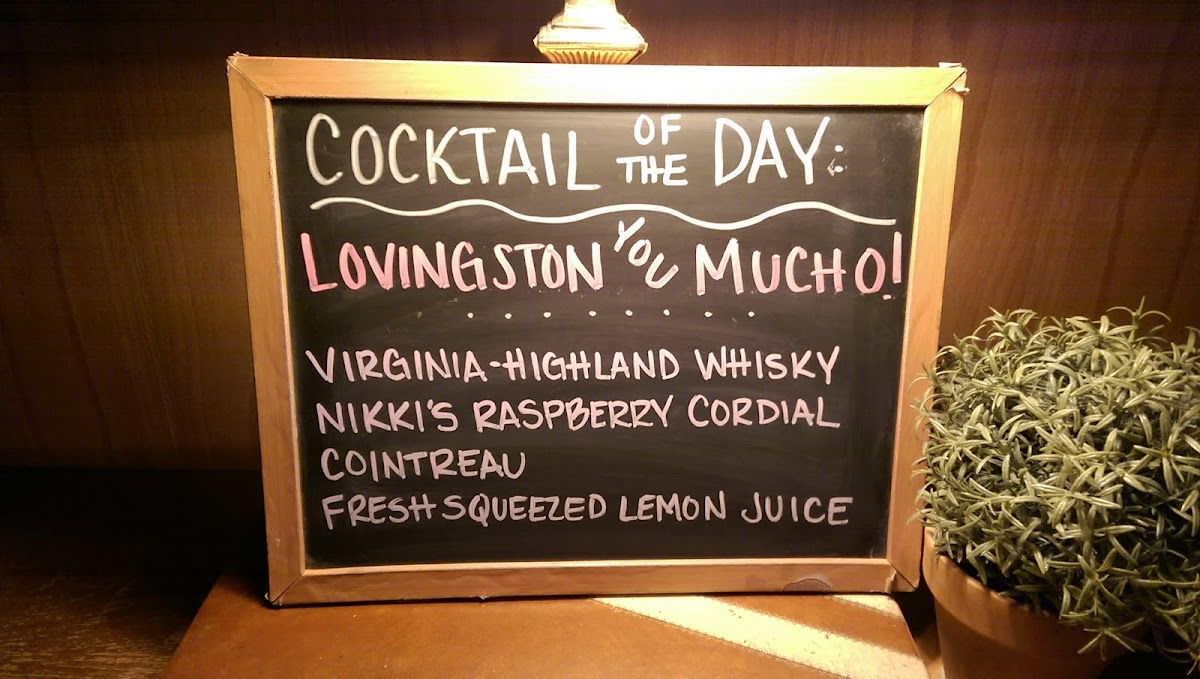 COCKTAIL OF THE DAY:
LOVINGSTON YOU MUCHO!
VIRGINIA-HIGHLAND WHISKY
NIKKI'S RASPBERRY CORDIAL
COINTREAU
FRESH SQUEEZED LEMON JUICE